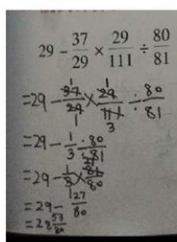 29 - 37/29 × 29/111 ÷ 80/81
=29 - 37/29 × 29/111 ÷ 80/81
=29 - 1/3 ÷ 80/81
=29 - 1/3 × 81/80
=29 - 27/80
=28 53/80